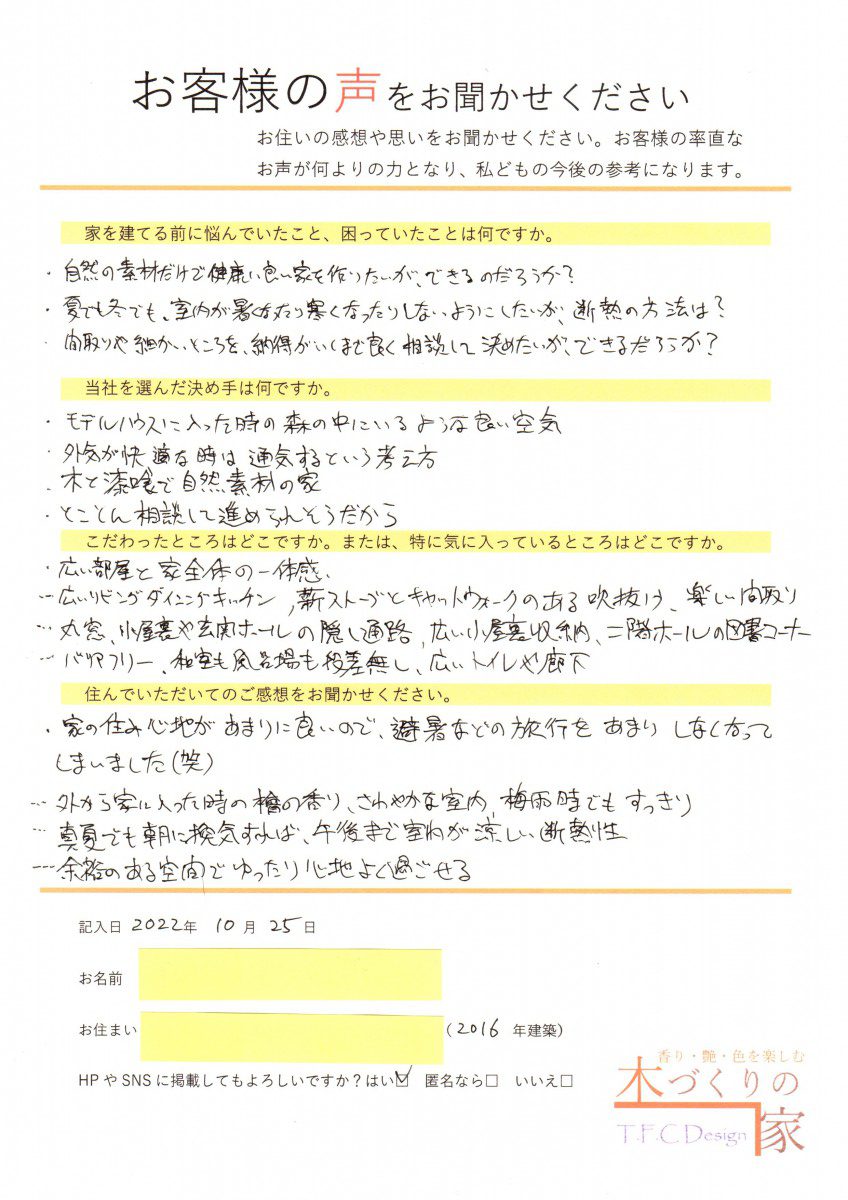 お客様の声をお聞かせください
お住いの感想や思いをお聞かせください。お客様の率直な
お声が何よりの力となり、私どもの今後の参考になります。
家を建てる前に悩んでいたこと、困っていたことは何ですか。
・自然の素材だけで健康に良い家を作りたいが、できるのだろうか?
・夏でも冬でも、室内が暑くなったり寒くなったりしないようにしたいが、断熱の方法は?
・間取りや細かいところを、納得がいくまで良く相談して決めたいが、できるだろうか?
当社を選んだ決め手は何ですか。
・モデルハウスに入った時の森の中にいるような良い空気
・外気が快適な時は通気するという考え方
・木と漆喰で自然素材の家
・とことん相談して進められそうだから
こだわったところはどこですか。または、特に気に入っているところはどこですか。
・広い部屋と家全体の一体感、
…広いリビングダイニングキッチン、薪ストーブとキャットウォークのある吹抜け、楽しい間取り
…丸窓、小屋裏や玄関ホールの隠し通路、広い小屋裏収納、二階ホールの図書コーナー
…バリアフリー、和室も風呂場も段差無し、広いトイレや廊下
住んでいただいてのご感想をお聞かせください。
・家の住み心地があまりに良いので、避暑などの旅行をあまりしなくなって
しまいました(笑)
…外から家に入った時の檜の香り、さわやかな室内、梅雨時でもすっきり
…真夏でも朝に換気すれば、午後まで室内が涼しい断熱性
…余裕のある空間でゆったり心地よく過ごせる
記入日 2022年 10月 25日
お名前
お住まい (2016 年建築)
HPやSNSに掲載してもよろしいですか?はい☑ 匿名なら□ いいえ□
香り・艶・色を楽しむ
木づくりの
家
T.F.C Design